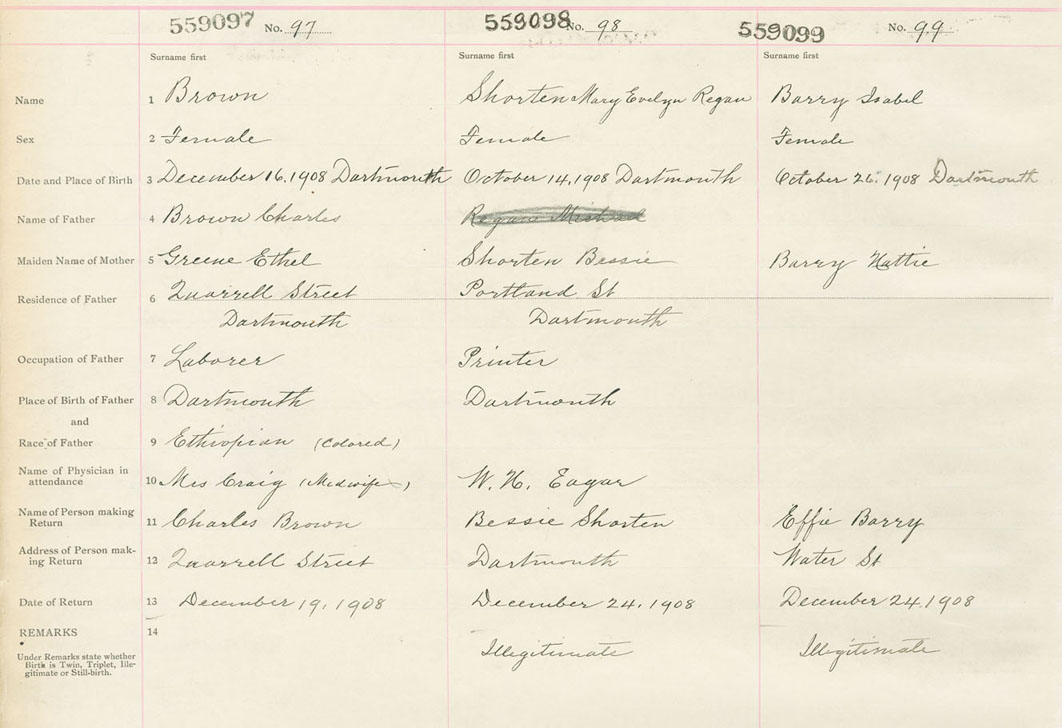 559097 No. 97 559098 No. 98 559099 No. 99
Surname first Surname first Surname first
Name 1 Brown Shorten Mary Evelyn Regan Barry Isabel
Sex 2 Female Female Female
Date and Place of Birth 3 December 16, 1908 Dartmouth October 14, 1908 Dartmouth October 26, 1908 Dartmouth
Name of Father 4 Brown Charles
Maiden Name of Mother 5 Greene Ethel Shorten Bessie Barry Hattie
Residence of Father 6 Quarrell Street Portland St
Dartmouth Dartmouth
Occupation of Father 7 Laborer Printer
Place of Birth of Father 8 Dartmouth Dartmouth
and
Race of Father 9 Ethiopian (Colored)
Name of Physician in
attendance 10 Mrs Craig (Midwife) W. H. Eagar
Name of Person making
Return 11 Charles Brown Bessie Shorten Effie Barry
Address of Person mak-
ing Return 12 Quarrell Street Dartmouth Water St
Date of Return 13 December 19, 1908 December 24, 1908 December 24, 1908
REMARKS 14
Under Remarks state whether
Birth is Twin, Triplet, Ille-
gitimate or Still-birth. Illegitimate Illegitimate